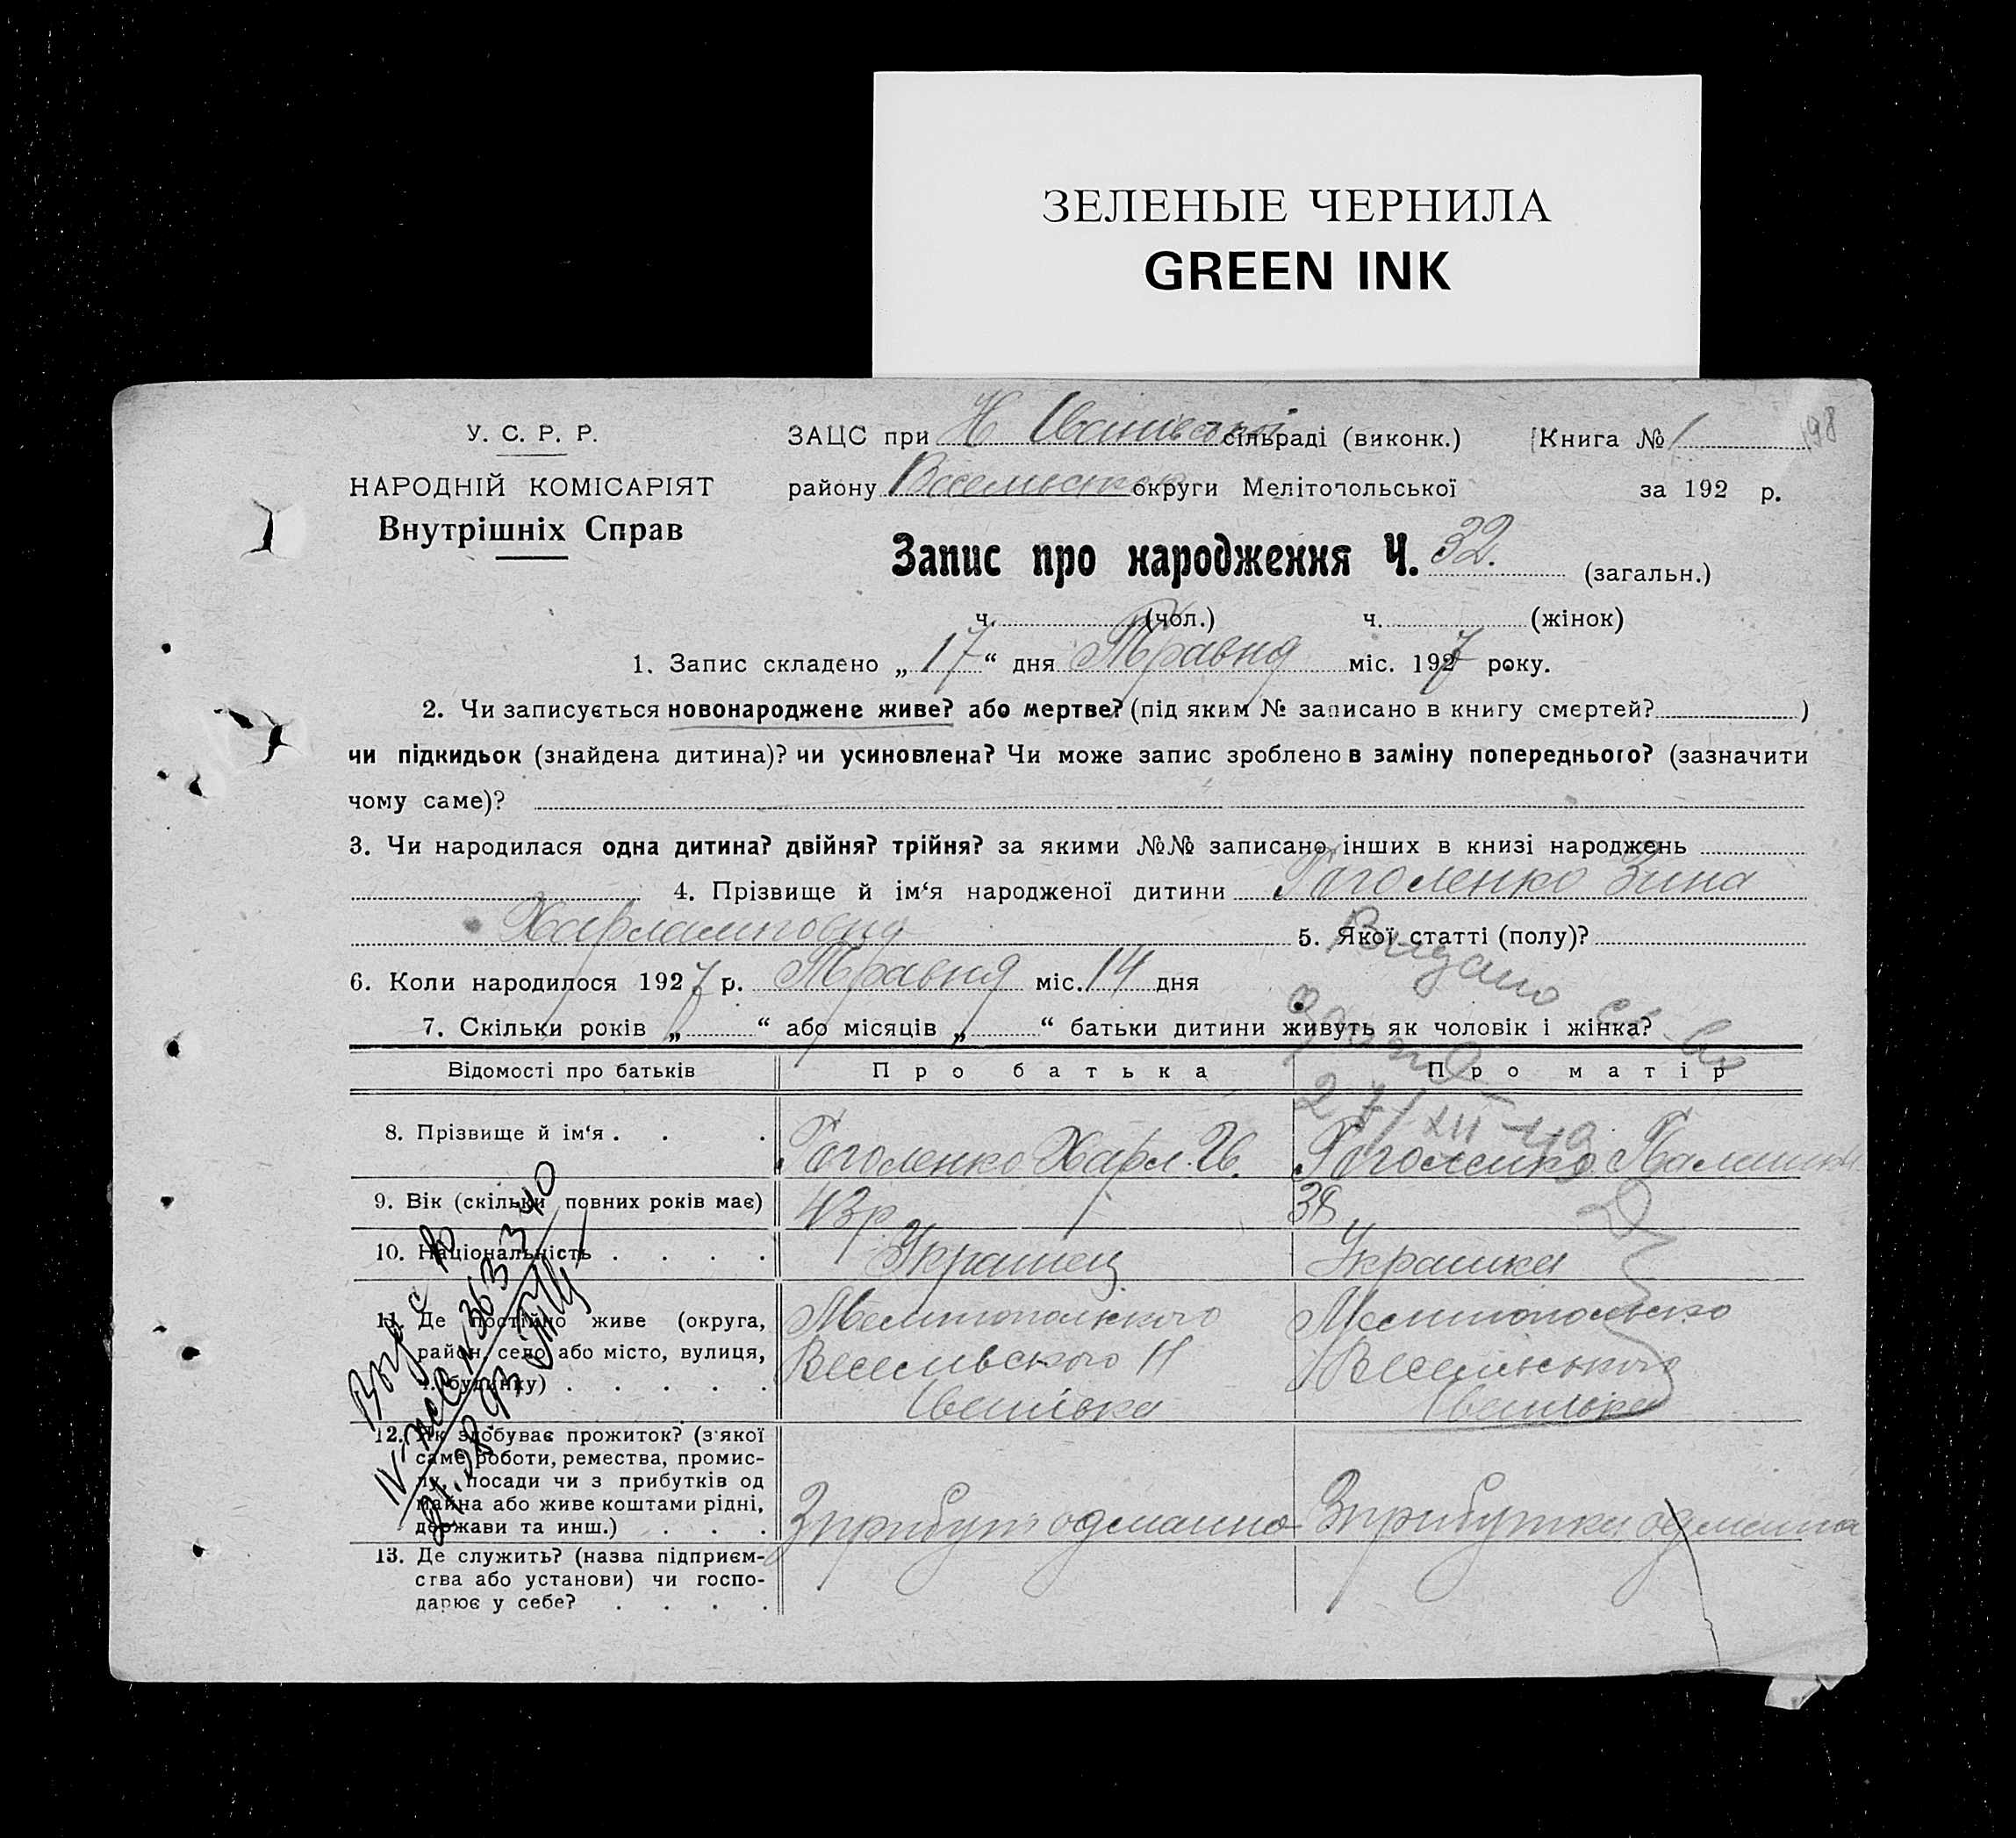 ЗЕЛЕНЫЕ ЧЕРНИЛА
GREEN INK
У. С. Р. Р.
НАРОДНІЙ КОМІСАРІЯТ
Внутрішніх Справ
ЗАЦС при Н Іванівської сільраді (виконк.) Книга № 1 198
району округи Мелітопольської за 192 р.
Запис про народження Ч. 32. (загальн.)
ч. (чол.) ч. (жінок)
1. Запис складено „17“ дня Травня міс. 1927 року.
2. Чи записується новонароджене живе? або мертве? (під яким № записано в книгу смертей? )
чи підкидьок (знайдена дитина)? чи усиновлена? Чи може запис зроблено в заміну попереднього? (зазначити
чому саме)?
3. Чи народилася одна дитина? двійня? трійня? за якими №№ записано інших в книзі народжень
4. Прізвище й ім‘я народженої дитини Гоголенко Зина
Харламповна 5. Якої статті (полу)?
Видано св во
6. Коли народилося 1927 р. Травня міс. 14 дня
7. Скільки років „ “ або місяців „ “ батьки дитини живуть як чоловік і жінка?
Відомості про батьків Про батька Про матір
27/XII-49
8. Прізвище й ім‘я . . . Гоголенко Харл. Ив. Гоголенко
9. Вік (скільки повних років має) 43 р. 38
10. Національність . . . . Украинец Украинка
11. Де постійно живе (округа,
район, село або місто, вулиця,
ч. будинку) . . . . .
Мелитопольского
Веселивского Н
Іванівка
Мелитопольско
Веселивського
Іванівка
12. Як здобуває прожиток? (з якої
саме роботи, ремества, промис-
лу, посади чи з прибутків од
майна або живе коштами рідні,
держави та инш.) . . .
Зприбутк одмаина Зприбутка одмаина
13. Де служить? (назва підприєм-
ства або установи) чи госпо-
дарює у себе? . . . .